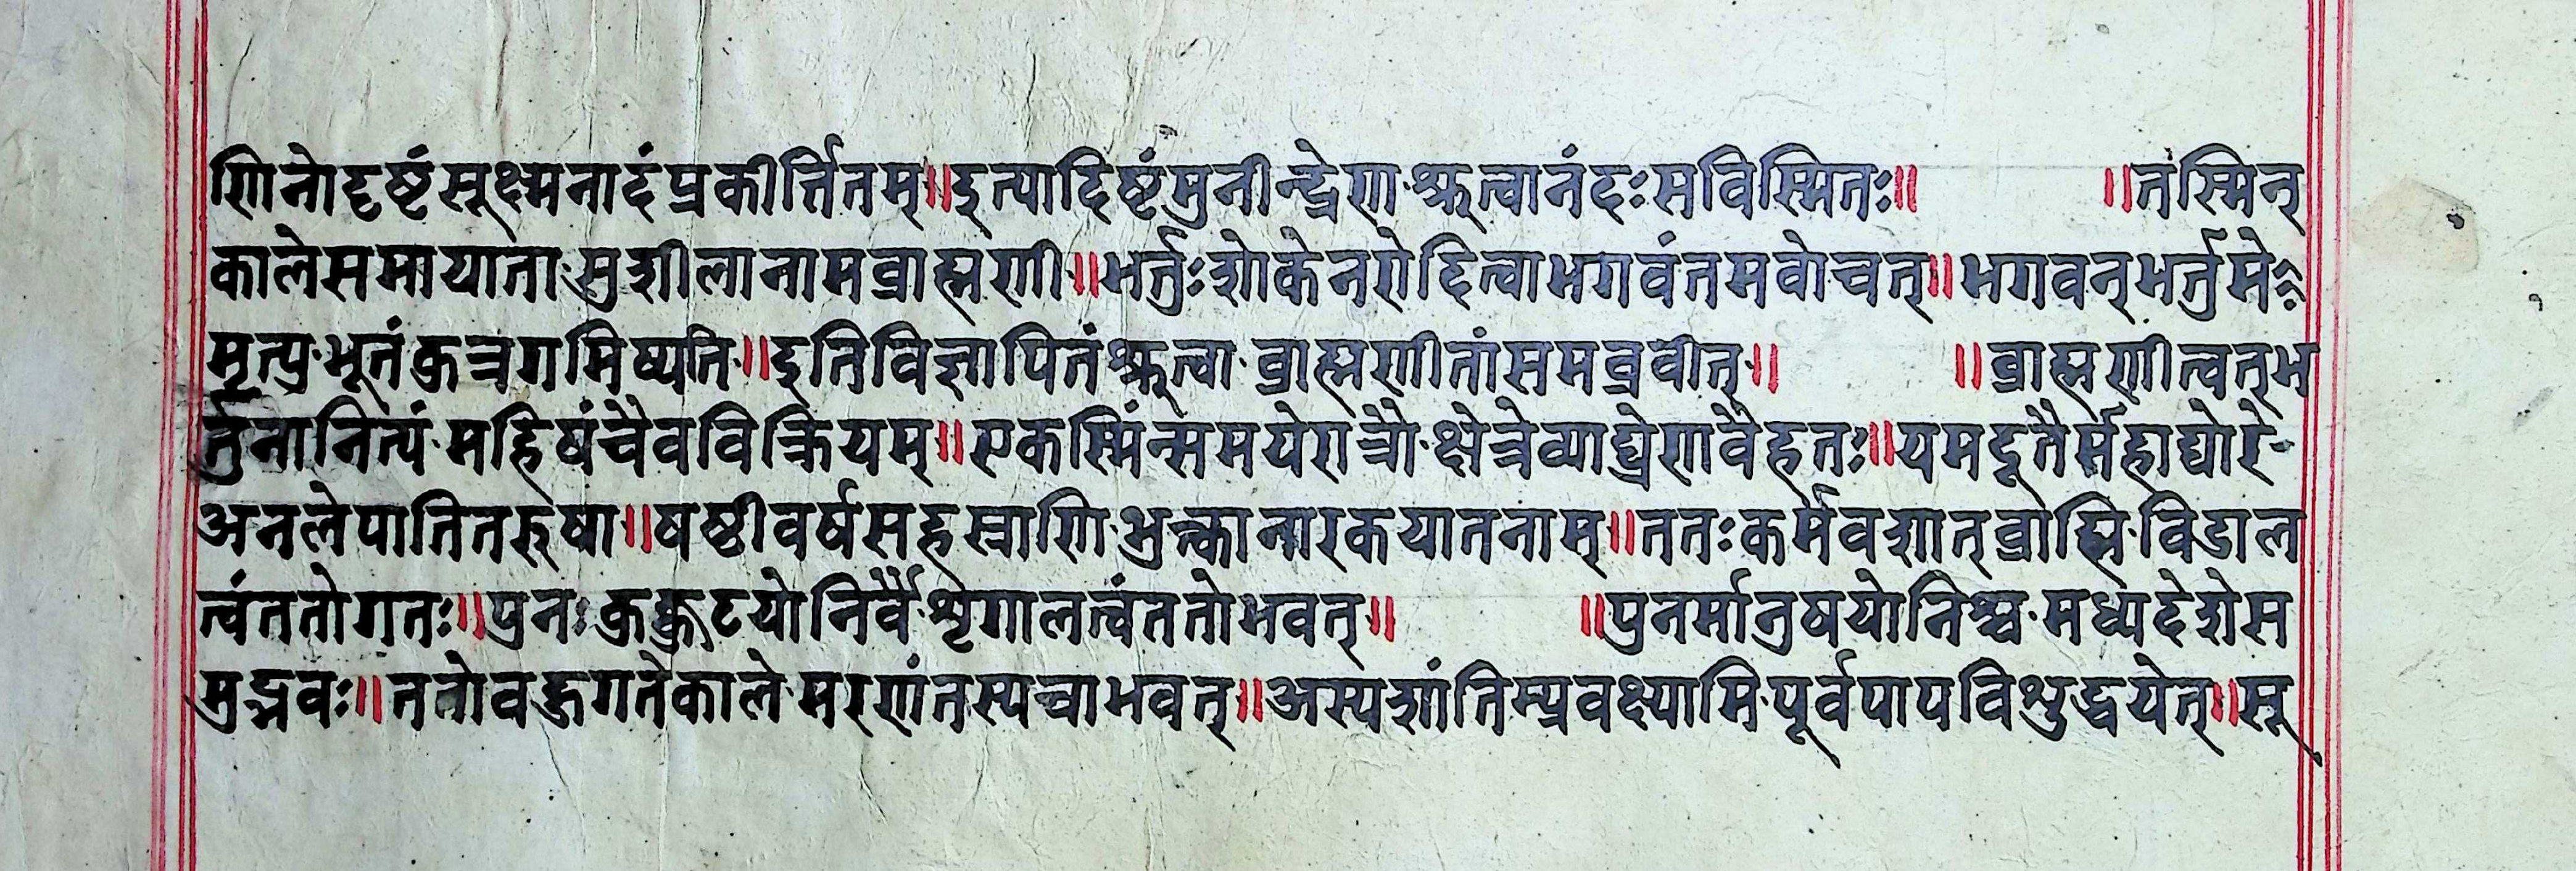 णिनोदृष्टंसूक्ष्मनादंप्रकीर्त्तितम्॥इत्यादिष्टंमुनीन्द्रेण·श्रुत्वानंदःसविस्मितः॥ ॥तंस्मिन्
कालेसमायाता·सुशीलानामब्राह्मणी·॥भर्तुःशोकेनरोदित्वाभगवंतमवोचत्॥भगवन्भर्तुमे
मृत्यु·भूतंकुत्रगमिष्यति·॥इतिविज्ञापितंश्रुत्वा·ब्राह्मणीतांसमब्रवीत्॥ ॥ब्राह्मणीत्वत्भ
र्तुनानित्यं·महिषंचैवविक्रियम्॥एकस्मिंन्समयेरात्रौ·क्षेत्रेव्याघ्रेणवैहतः॥यमदूतैर्महाघोरे-
अनलेपातितरुषा॥षष्टीवर्षसहस्राणि·भुक्त्कानारकयातनाम्॥ततःकर्मवशात्ब्राह्मि·विडाल
त्वंततोगतः॥पुनःकुक्कुटयोनिर्वै·शृगालत्वंततोभवत्॥ ॥पुनर्मानुषयोनिश्च·मध्यदेशेस
मुद्भवः॥ततोवहुगतेकाले·मरणंतस्यचाभवत्॥अस्यशांतिम्प्रवक्ष्यामि·पूर्वपापविशुद्धयेत्॥सू